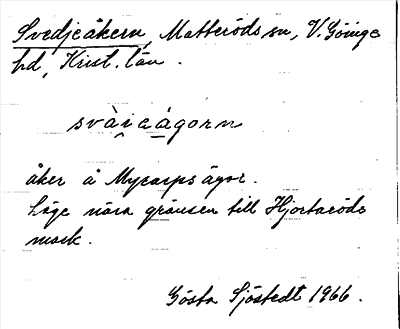 Svedjeåkern, Matteröds sn, V. Göinge
hd, Krist. län.
svài̯eágorn
åker å Myrarps ägor.
Läge nära gränsen till Hjortaröds
mark.
Gösta Sjöstedt 1966.